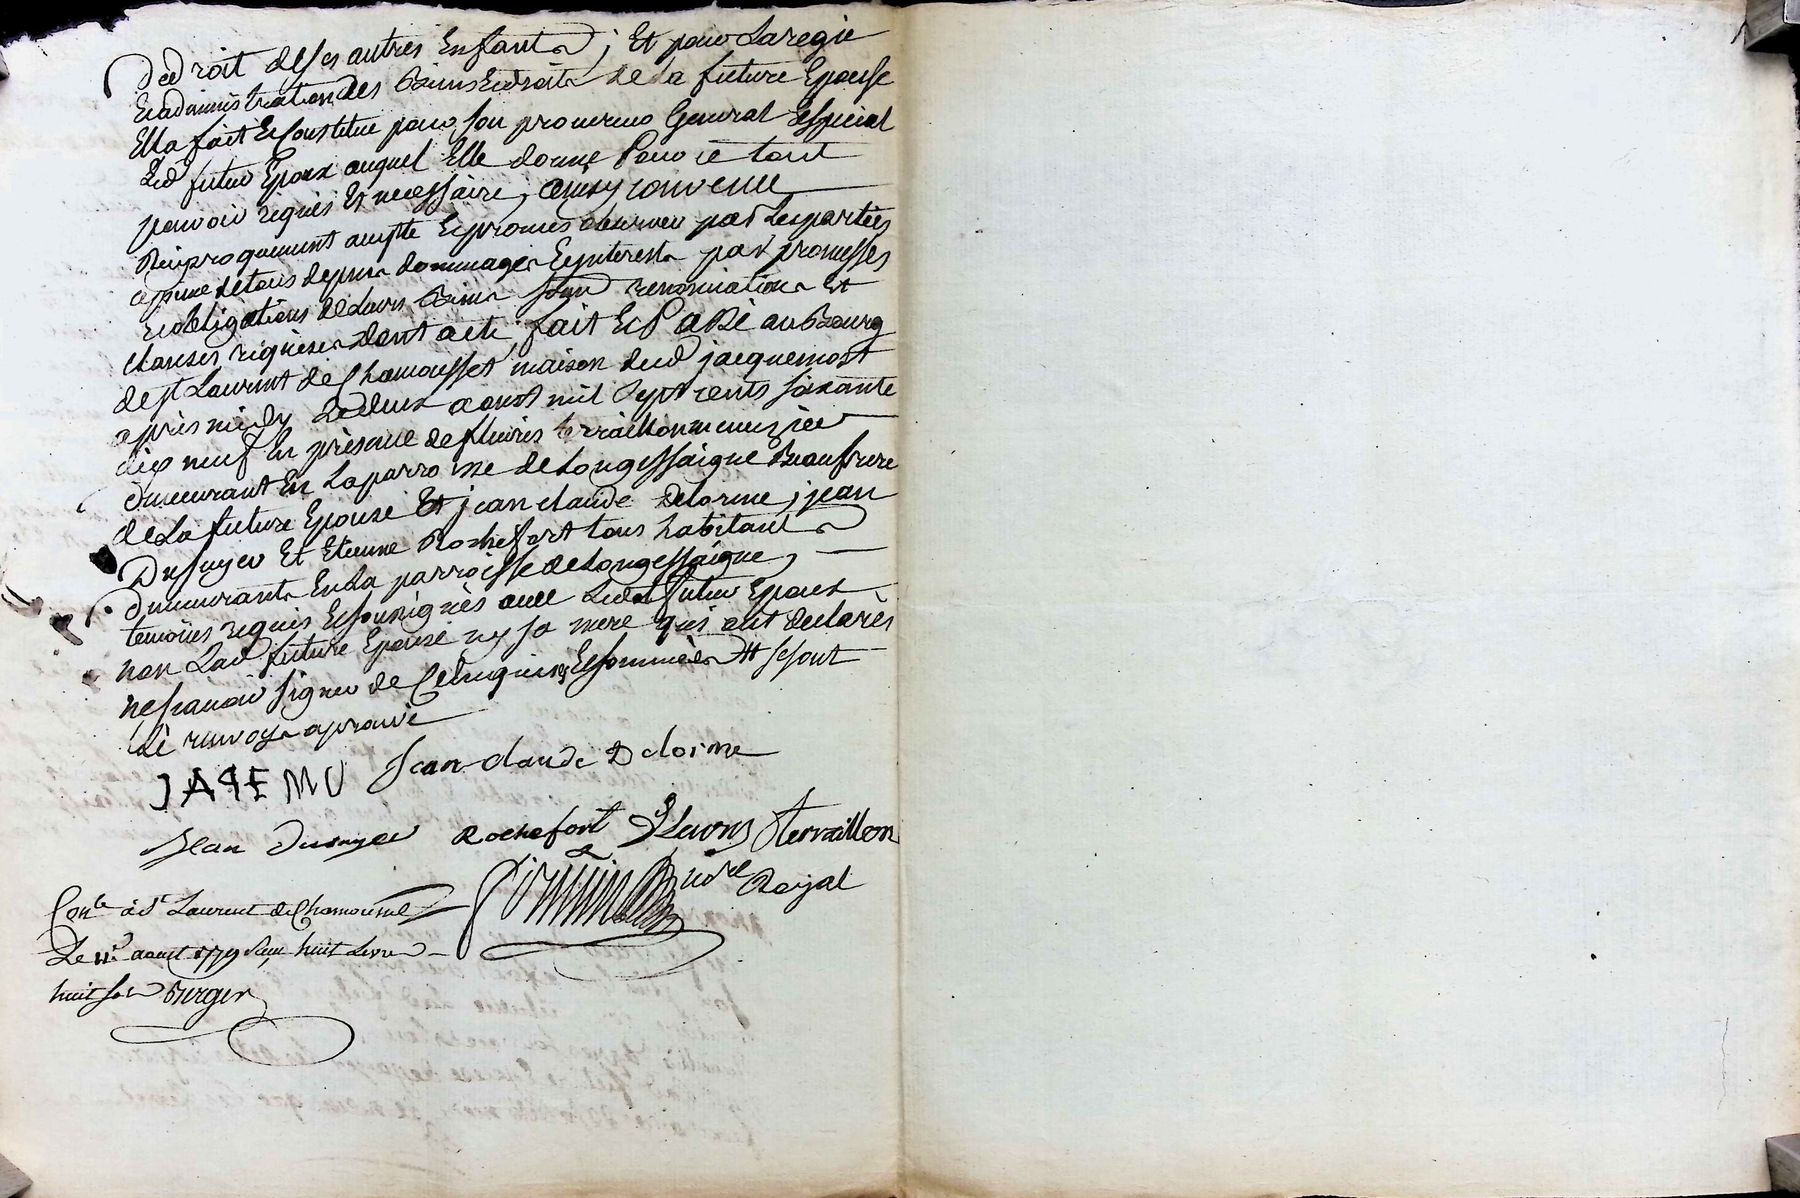 dedroit deses autres Enfants ; Et pour Laregie
Etadministration des biens Etdroits de la future Epouse
Ella fait Etconstitue pour son procureur General Espécial
Led futur Epoux auquel Elle donne Pour ce tout
pouvoir requis Et necessaire, ainsy convenu
Reciproquement accepté Etpromis observer par Lesparties
apeine detous depens dommages Eyinterests par promesses
Etobligations deLeurs biens Sous renonciations Et
clauses requises dont acte fait EtPaßé auBourg
de st Laurent de Chamousset maison dud jacquemot
après midy Ledeux aoust mil sept cents soixante
dix neuf En présence defleuris terraillon menuzier
demeurant En Laparroisse deLongessaigne Beaufrere
deLa future Epouse Et jean claude delorme, jean
Dusuyer Et Etienne Rochefort tous habitants
demeurants EnLa parroisse deLongessaigne,
temoins requis Etsousignés avec Ledit futur Epoux
non Lad future Epouse ny sa mere qui ont declarés
nesçavoir signer de Ce Enquises Etsommées # sesont
Le renvoys aprouvé
JAPEMU Jean Claude Delorme
Jean Dusuyer Rochefort fLeuris terraillon
no.re Royal
Con.le à S.t Laurent de Chamousset
Le 11.e aoust 1779 Reçu huit Livres
huit sols Berger